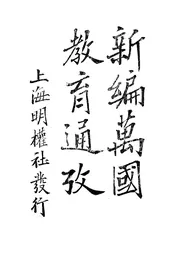 新編萬國
教育通攷
上海明權社發行